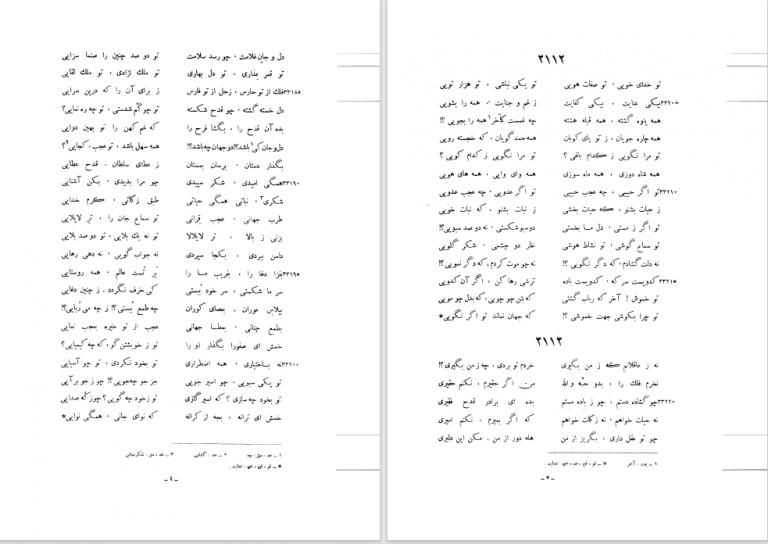 ۳۱۱۲
تو خدای خویی ، تو صفات هویی تو یکی نباشی ، تو هزار تویی
۳۳۲۰۵ بیکی عنایت ، بیکی کفایت ز غم و جنایت ، همه را بشویی
همه یاوه گشته ، همه قبله هشته تو غمست کآخر۱ همه را بجویی ؟!
همه چاره جویان ، ز تو پای کوبان همه حمد گویان ، که خجسته رویی
تو مرا نگویی ز کدام باغی ؟ تو مرا نگویی ز کدام کویی ؟
همه شاه دوزی ، همه ماه سوزی همه وای وایی ، همه های هویی
۳۳۲۱۰ تو اگر حبیبی ، چه عجب حبیبی تو اگر عدویی ، چه عجب عدویی
ز حیات بشنو ، که حیات بخشی ز نبات بشنو ، که نبات خویی
تو اگر ز مستی ، دل ما بخستی دو سبو شکستی ، نه دو صد سبویی ؟!
تو سماع گوشی ، تو نشاط هوشی نظر دو چشمی ، شکر گلویی
نه دلت گشادم ، که دگر نگویی ؟! نه چو موت کردم ، که دگر نمویی ؟!
۳۳۲۱۵ کدویست سر که ، کدویست باده ترشی رها کن ، اگر آن کدویی
تو خموش ! آخر که رباب گشتی که بتن چو چوبی ، که بدل چو مویی
تو چرا بکوشی جهت خموشی ؟! که جهان نماند تو اگر نگویی*
۳۱۱۳
نه ز عاقلانم که ز من بگیری خردم تو بردی ، چه ز من بگیری ؟!
نخرم فلک را ، بدو حبه والله من اگر حقیرم ، نکنم حقیری
۳۳۲۲۰ چو گشاده دستم ، چو ز باده مستم بده ای برادر قدح فقیری
نه حیات خواهم ، نه زکات خواهم که اگر بمیرم ، نکنم امیری
چو تو عقل داری ، بگریز از من هله دور از من ، مکن این دلیری
۱ ــ چت ، آخر * ــ قو ، قح ، عد ، خج ، ندارد .
ــ ۵ ــ
دل و جان غلامت ، چو رسد سلامت تو دو صد چنین را صنما سزایی
تو قمر عذاری ، تو دل بهاری تو ملک نژادی ، تو ملک لقایی
۳۳۱۸۵ فلک از تو حارس ، زحل از تو فارس ز برای آن را که درین سرایی
دل خسته گشته ، چو قدح شکسته تو چو گم شدستی ، تو چه ره نمایی ؟
بده آن قدح را ، بگشا فرح را که غم کهن را تو بهین دوایی
دل و جان کی۲ باشد ؟! دو جهان چه باشد ؟! همه سهل باشد ، تو عجب ، کجایی ؟
بگذار دستان ، برسان بمستان ز عطای سلطان ، قدح عطایی
۳۳۱۹۰ همگی امیدی ، شکر سپیدی چو مرا بدیدی ، بکن آشنایی
شکری۳ ، نباتی همگی حیاتی طبق زکاتی ، کرم خدایی
طرب جهانی ، عجب قرانی تو سماع جان را ، تر لایلایی
بزنی ز بالا ، تر لایلالا تو نه یک بلایی ، تو دو صد بلایی
دامن ببردی ، بکجا سپردی نه جواب گویی ، نه دهی رهایی
۳۳۱۹۵ بفزا دغا را ، بفریب ما را بر تست عالم ، همه روستایی
سر ما شکستی ، سر خود ببستی که خرف نگردد ، ز چنین دغایی
بپلاس عوران ، بعصای کوران چه طمع ببستی ؟! ز چه می ربایی ؟!
بطمع چنانی ، بعطا جهانی عجب از تو خیره بعجب نمایی
خمش ای صفورا بگذار او را تو ز خویشتن گو ، که چه کیمیایی ؟
۳۳۲۰۰ نه باختیاری ، همه اضطراری تو بخود نگردی ، تو چو آسیایی
تو یکی سبویی ، چو اسیر جویی جز جو چه جویی ؟! چو ز جو برآیی
تو بخود چه سازی ؟ که اسیر گازی تو ز خود چه گویی ؟ چو ز که صدایی
خمش ای ترانه ، بجه از کرانه که نوای جانی ، همگی نوایی*
۱ ــ عد ، مق ، چه ۲ ــ عد ، ۳ ــ عد ، مق ،
* ــ قو ، قح ، عد ، خج ، ندارد .
ــ ۴ ــ